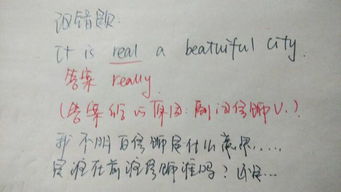 改错题:
It is real a beatuiful city.
答案 really
(答案给的原因:副词修饰V.)
我不明白修饰是什么意思.....
是谁在前谁修饰谁吗?还是...